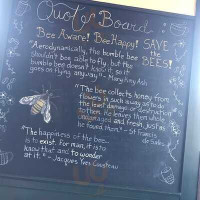 Quote Board
Bee Aware! Bee Happy! SAVE
the
BEES!
"Aerodynamically, the bumble bee
shouldn't bee able to fly, but the
bumble bee doesn't know it, so it
goes on flying anyway." - Mary Kay Ash
"The bee collects honey from
flowers in such a way as to do
the least damage or destruction
to them. He leaves them whole,
undamaged and fresh, just as
he found them." - St Francis
de Sales
"The happiness of the bee...
is to exist. For man, it is to
know that and to wonder
at it." - Jacques Yves Cousteau